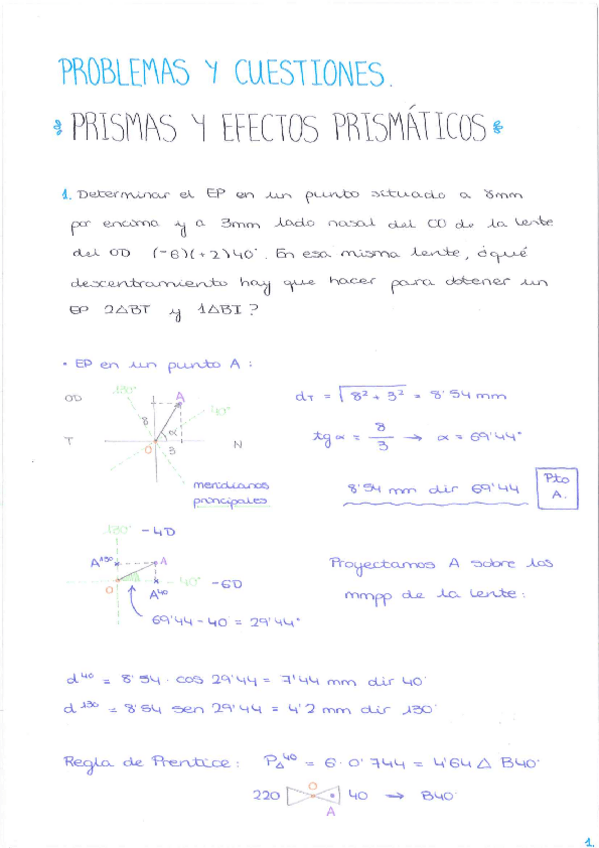 PROBLEMAS Y CUESTIONES.
PRISMAS Y EFECTOS PRISMÁTICOS
1. Determinar el EP en un punto situado a 8mm
por encima y a 3mm lado nasal del CO de la lente
del OD (-6)(+2)40°. En esa misma lente, ¿qué
descentramiento hay que hacer para obtener un
EP 2△BT y 1△BI?
• EP en un punto A:
OD
130°
A
40°
8
α
O
3
T
N
meridianos
principales
dT = √8² + 3² = 8'54 mm
tg α = 8/3 → α = 69'44°
8'54 mm dir 69'44
Pto
A.
130° -4D
A¹³⁰
A
O
A⁴⁰
40° -6D
69'44 - 40 = 29'44°
Proyectamos A sobre los
mmpp de la lente:
d⁴⁰ = 8'54 · cos 29'44 = 7'44 mm dir 40°
d¹³⁰ = 8'54 sen 29'44 = 4'2 mm dir 130°
Regla de Prentice: P△⁴⁰ = 6 · 0'744 = 4'64 △ B40°
220
O
A
40 → B40°
1.